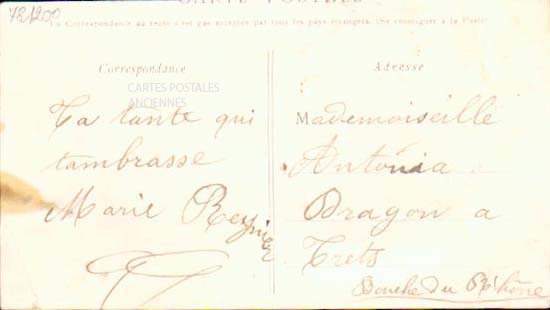 781200
CARTE POSTALE
La Correspondance au recto n'est pas acceptée par tous les pays étrangers. (Se renseigner à la Poste)
Correspondance
CARTES POSTALES
ANCIENNES
Ta tante qui
tambrasse
Marie Reynier
Adresse
Mademoiselle
Antonia
Dragon a
Trets
Bouche du Rhône